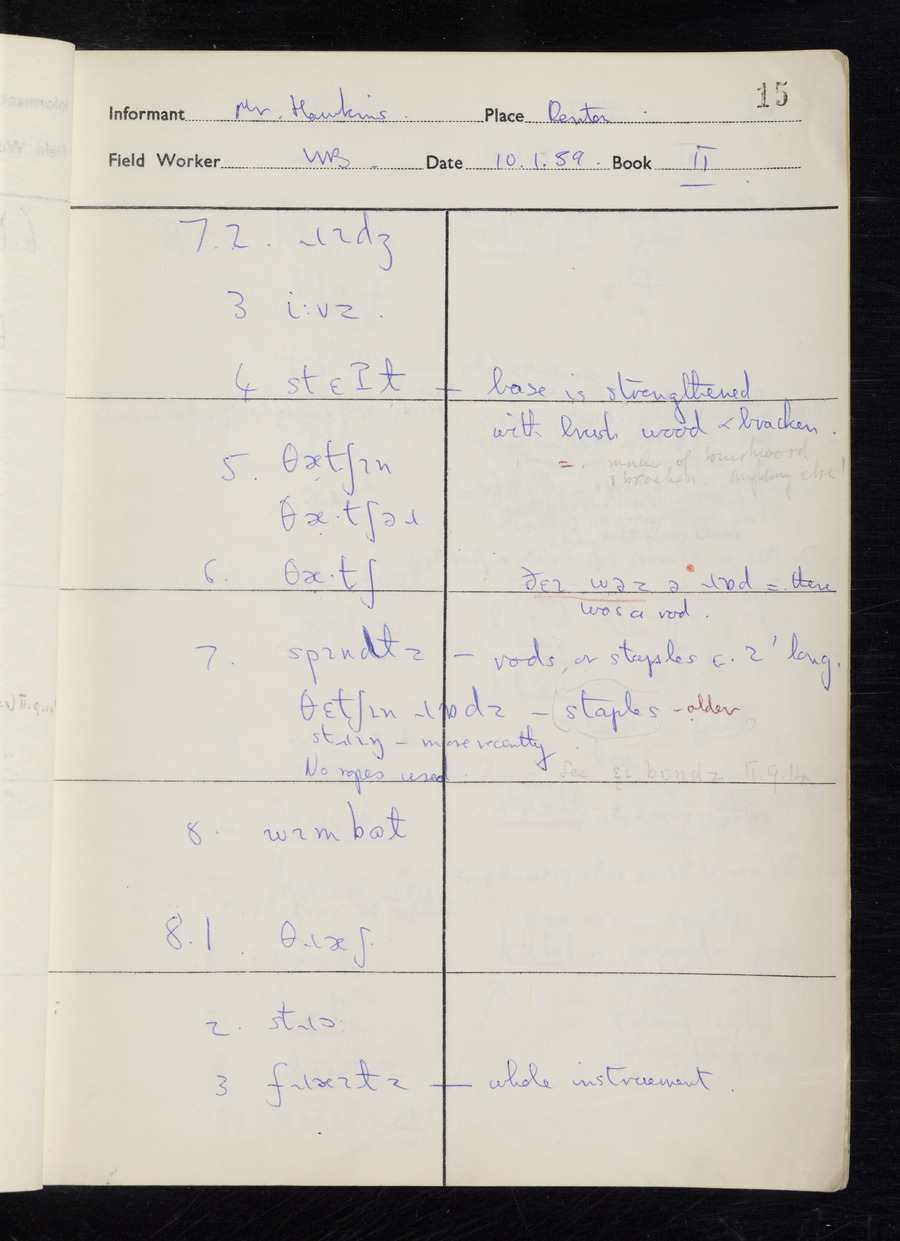 15
Informant Mr. Hawkins. Place Denton
Field Worker WB. Date 10.1.59. Book II
7.2. ɹɪdʒ
3 i:vz.
4 stɛɪt — base is strengthened
with brush wood & bracken.
= made of brushwood
& bracken. Anything else?
5. θætʃɪn
θæ·tʃəɹ
6. θæ·tʃ ðɛɪ wəz ə ɹɒd = there
was a rod.
7. — rods, or staples c. 2' long.
θɛtʃɪn ɹɒdz — staples - older
stɹɪŋ — more recently
No ropes used. bɒndz II.9.14
8. wɪmbət
8.1. θɹæʃ
2. stɹɔ:
3 — whole instrument.